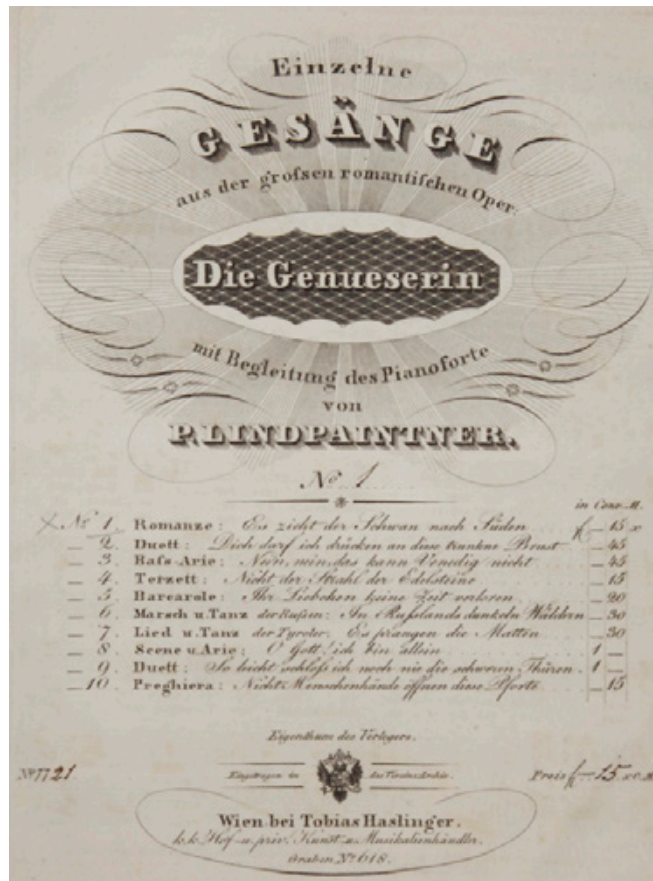 Einzelne
GESÄNGE
aus der grofsen romantifchen Oper:
Die Genueserin
mit Begleitung des Pianoforte
von
P. LINDPAINTNER.
No 1
in Conv. M.
× No 1. Romanze: Es zieht der Schwan nach Süden f — 15 x
— 2. Duett: Dich darf ich drücken an diese trunkne Brust — 45
— 3. Bafs-Arie: Nein, nein, das kann Venedig nicht — 45
— 4. Terzett: Nicht der Strahl der Edelsteine — 15
— 5. Barcarole: Ihr Liebchen keine Zeit verloren — 20
— 6. Marsch u. Tanz der Rufsen: In Rufslands dunkeln Wäldern — 30
— 7. Lied u. Tanz der Tyroler: Es prangen die Matten — 30
— 8. Scene u. Arie: O Gott! ich bin allein 1 —
— 9. Duett: So leicht schlofs ich noch nie die schweren Thüren 1 —
— 10. Preghiera: Nicht Menschenhände öffnen diese Pforte — 15
Eigenthum des Verlegers.
No 7721. Eingetragen in das Vereins-Archiv. Preis f — 15 x C.M.
Wien bei Tobias Haslinger.
k.k. Hof- u. priv. Kunst- u. Musikalienhändler.
Graben No 618.